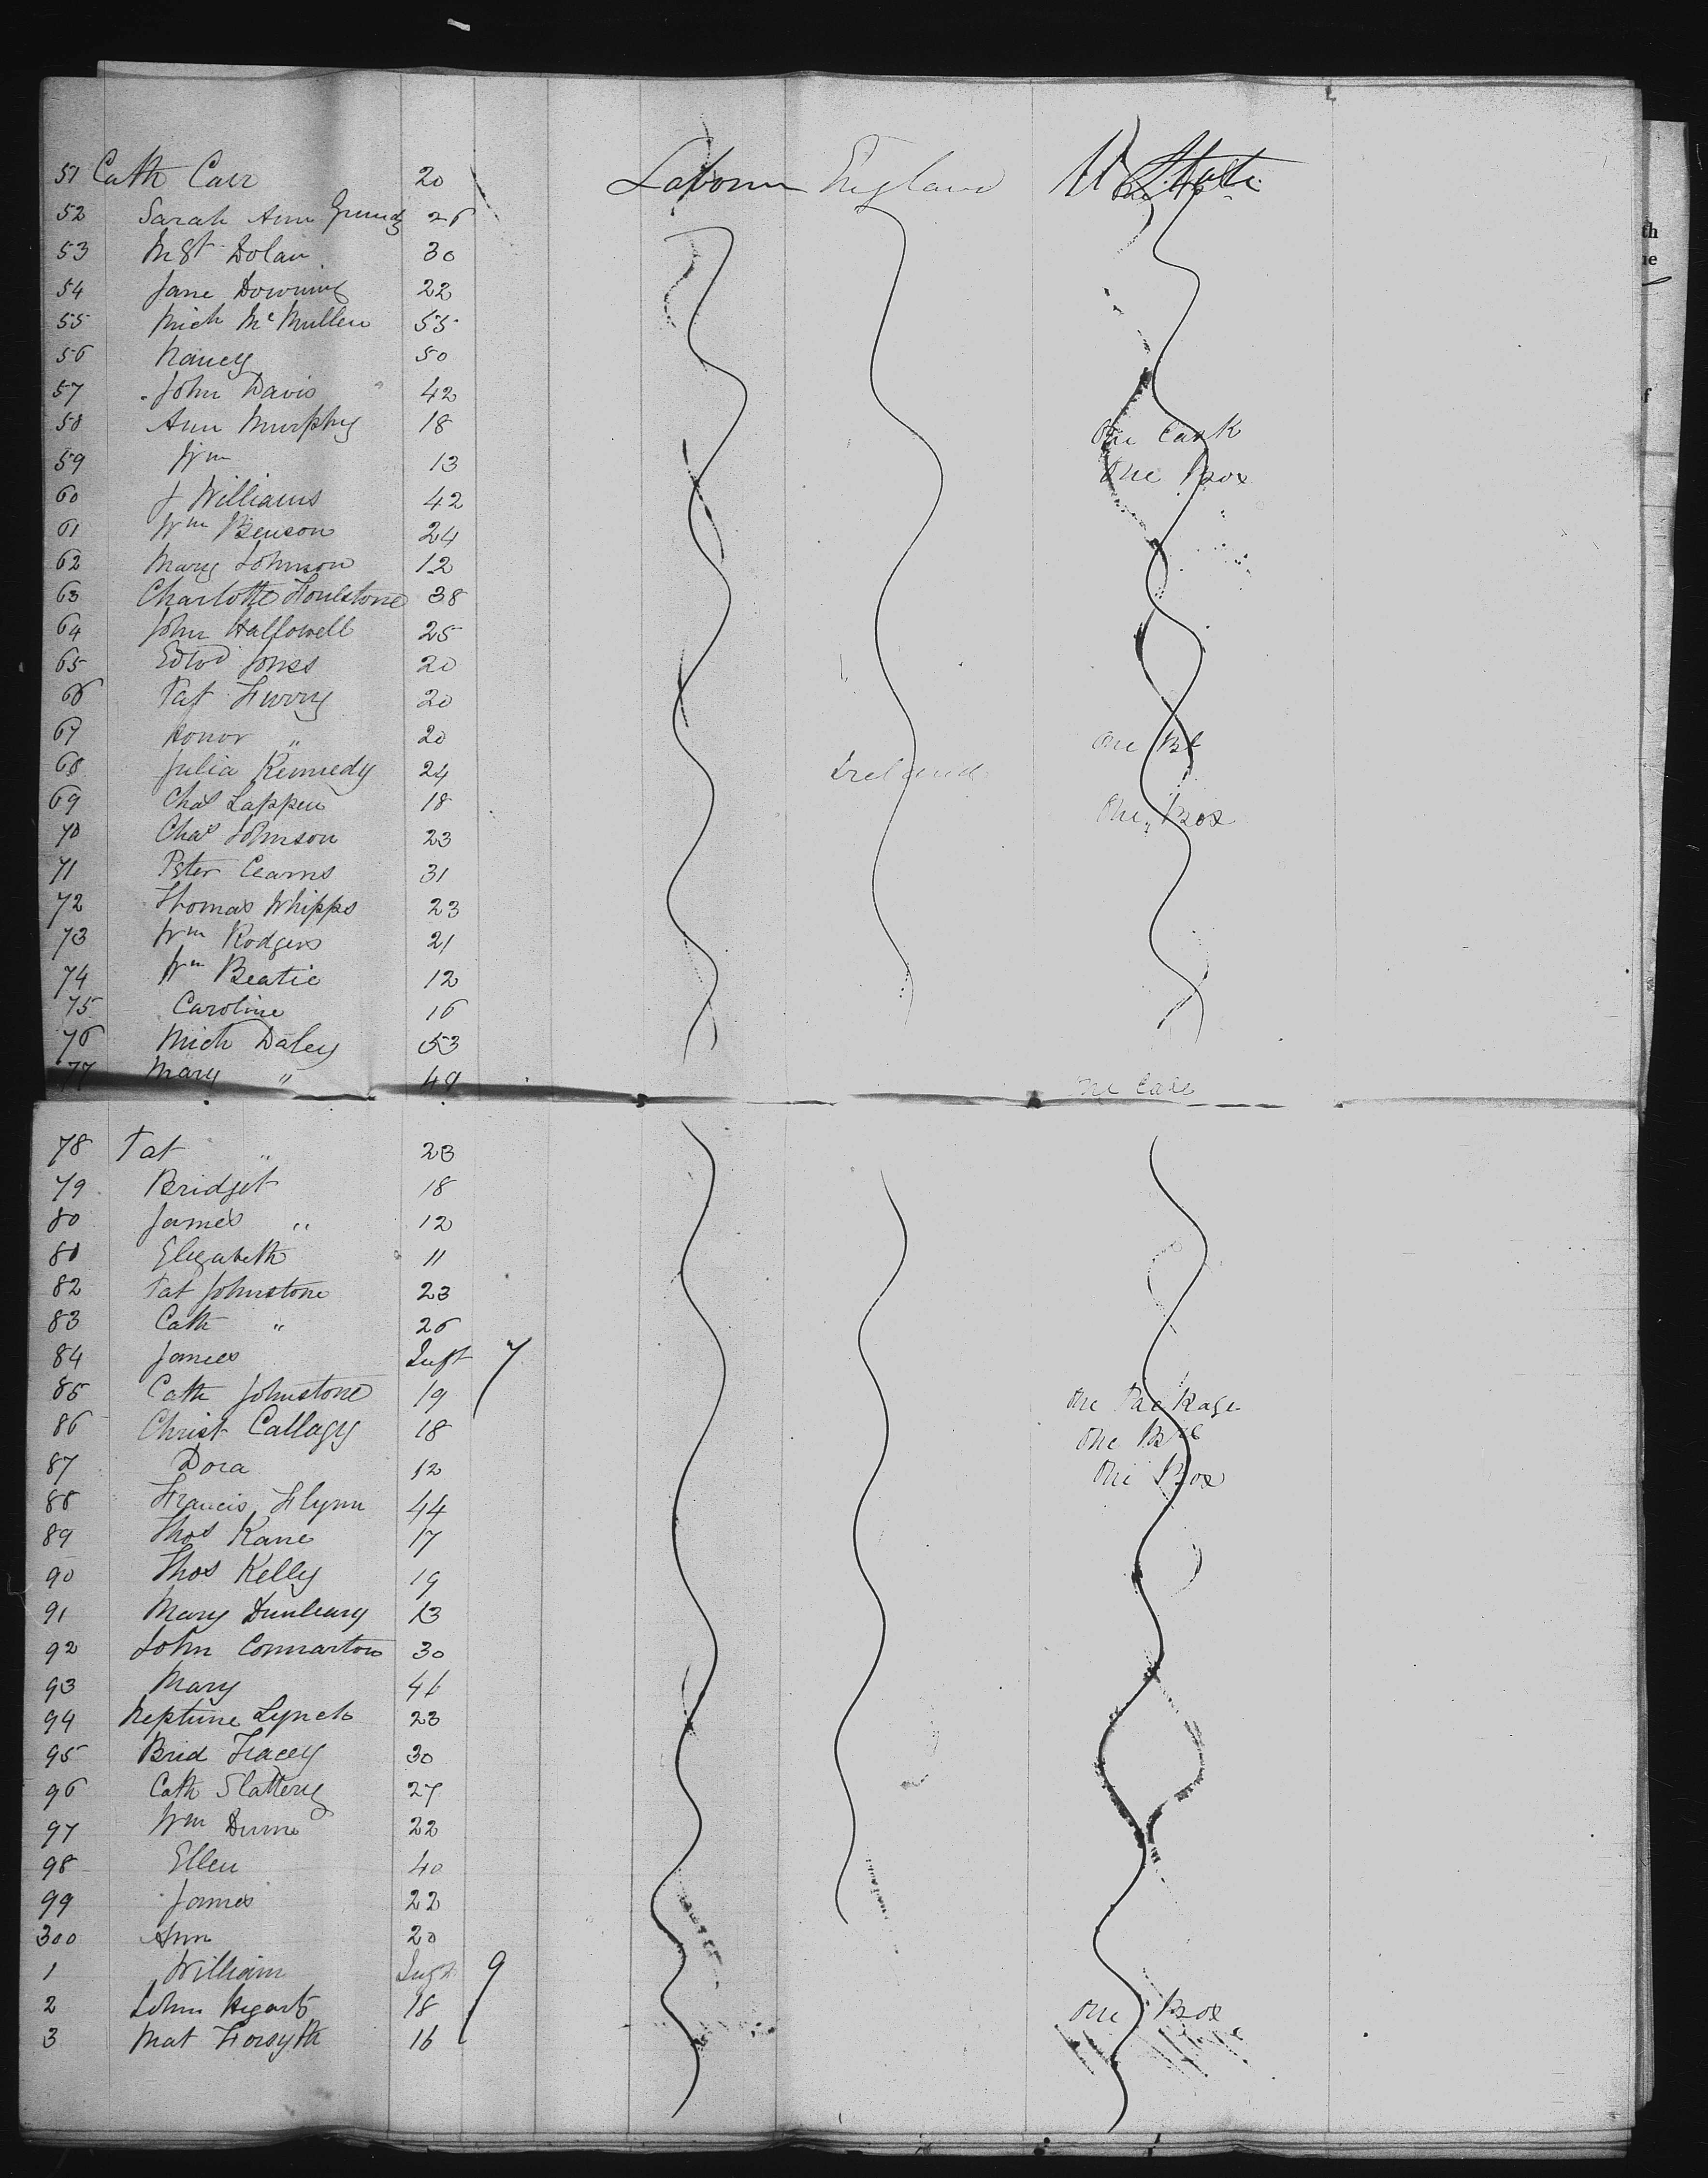 51 Cath Carr 20 Labourer England U States
52 Sarah Ann Grundy 26
53 Mgt Dolan 30
54 Jane Downing 22
55 Mich McMullen 55
56 Nancy 50
57 John Davis 42
58 Ann Murphy 18 One Cask
59 Wm 13 One Box
60 J Williams 42
61 Wm Benson 24
62 Mary Johnson 12
63 Charlotte Foulstone 38
64 John Hallowell 25
65 Edwd Jones 20
66 Pat 20
67 Honor " 20 One
68 Julia Kennedy 24 Ireland
69 Chas Lappen 18 One Box
70 Chas Johnson 23
71 Peter Cearns 31
72 Thomas Whipps 23
73 Wm Rodgers 21
74 Wm Beatie 12
75 Caroline 16
76 Mich Daley 53
77 Mary " 49 One Case
78 Pat " 23
79 Bridget 18
80 James " 12
81 Elizabeth 11
82 Pat Johnstone 23
83 Cath " 26
84 James Inft 7
85 Cath Johnstone 19 One Package
86 Christ Callagy 18 One
87 Dora 12 One Box
88 Francis Flynn 44
89 Thos Kane 17
90 Thos Kelly 19
91 Mary Dunleavy 13
92 John Connarton 30
93 Mary
94 Neptune Lynch 23
95 Brid Tracey 30
96 Cath Slattery 27
97 Wm Dunn 22
98 Ellen 40
99 James 22
300 Ann 20
1 William Inft 9
2 John Hegarty 18 One Box
3 Mat Forsyth 16
th
ne
of